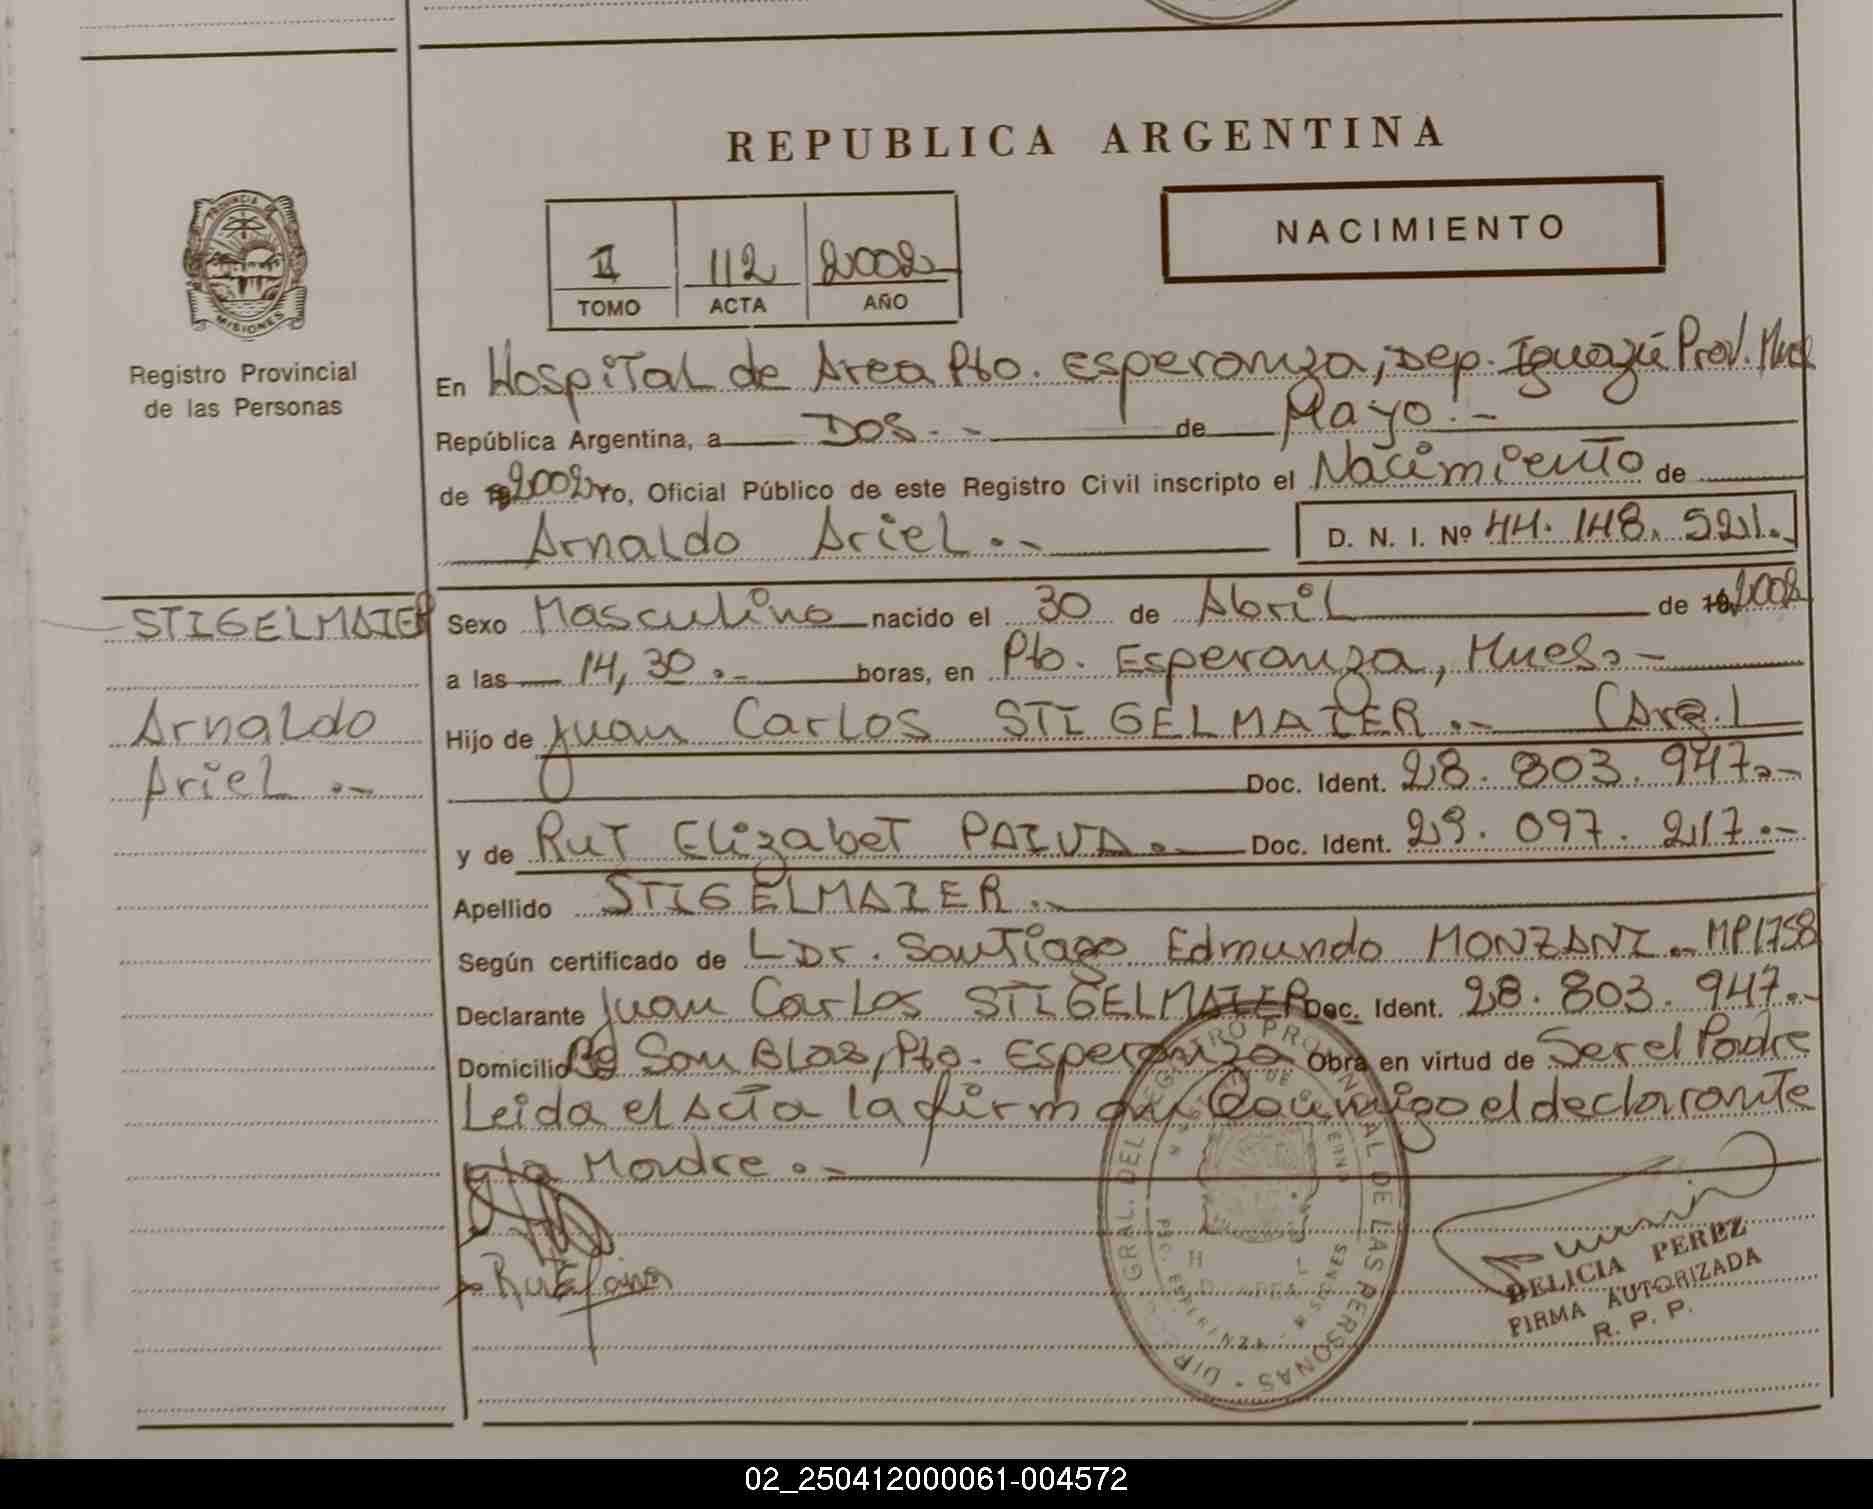 REPUBLICA ARGENTINA
NACIMIENTO
II 112 2002
TOMO ACTA AÑO
PROVINCIA DE
MISIONES
Registro Provincial
de las Personas
En Hospital de Area Pto. Esperanza, Dep. Iguazú Prov. Mnes
República Argentina, a Dos.- de Mayo.-
de 2002 Yo, Oficial Público de este Registro Civil inscripto el Nacimiento de
Arnaldo Ariel.- D. N. I. Nº 44.148.521.-
STIGELMAIER
Arnaldo
Ariel.-
Sexo Masculino nacido el 30 de Abril de 2002
a las 14,30.- horas, en Pto. Esperanza, Mnes.-
Hijo de Juan Carlos STIGELMAIER.- (Arg.)
Doc. Ident. 28.803.947.-
y de Rut Elizabet PAIVA.- Doc. Ident. 29.097.217.-
Apellido STIGELMAIER.-
Según certificado de L Dr. Santiago Edmundo MONZANI.- MP1758
Declarante Juan Carlos STIGELMAIER Doc. Ident. 28.803.947.-
Domicilio Bº San Blas, Pto. Esperanza Obra en virtud de Ser el Padre
Leida el Acta la firman Conmigo el declarante
y la Madre.-
DIR. GRAL. DEL REGISTRO PROVINCIAL DE LAS PERSONAS
DELICIA PEREZ
FIRMA AUTORIZADA
R. P. P.
02_250412000061-004572